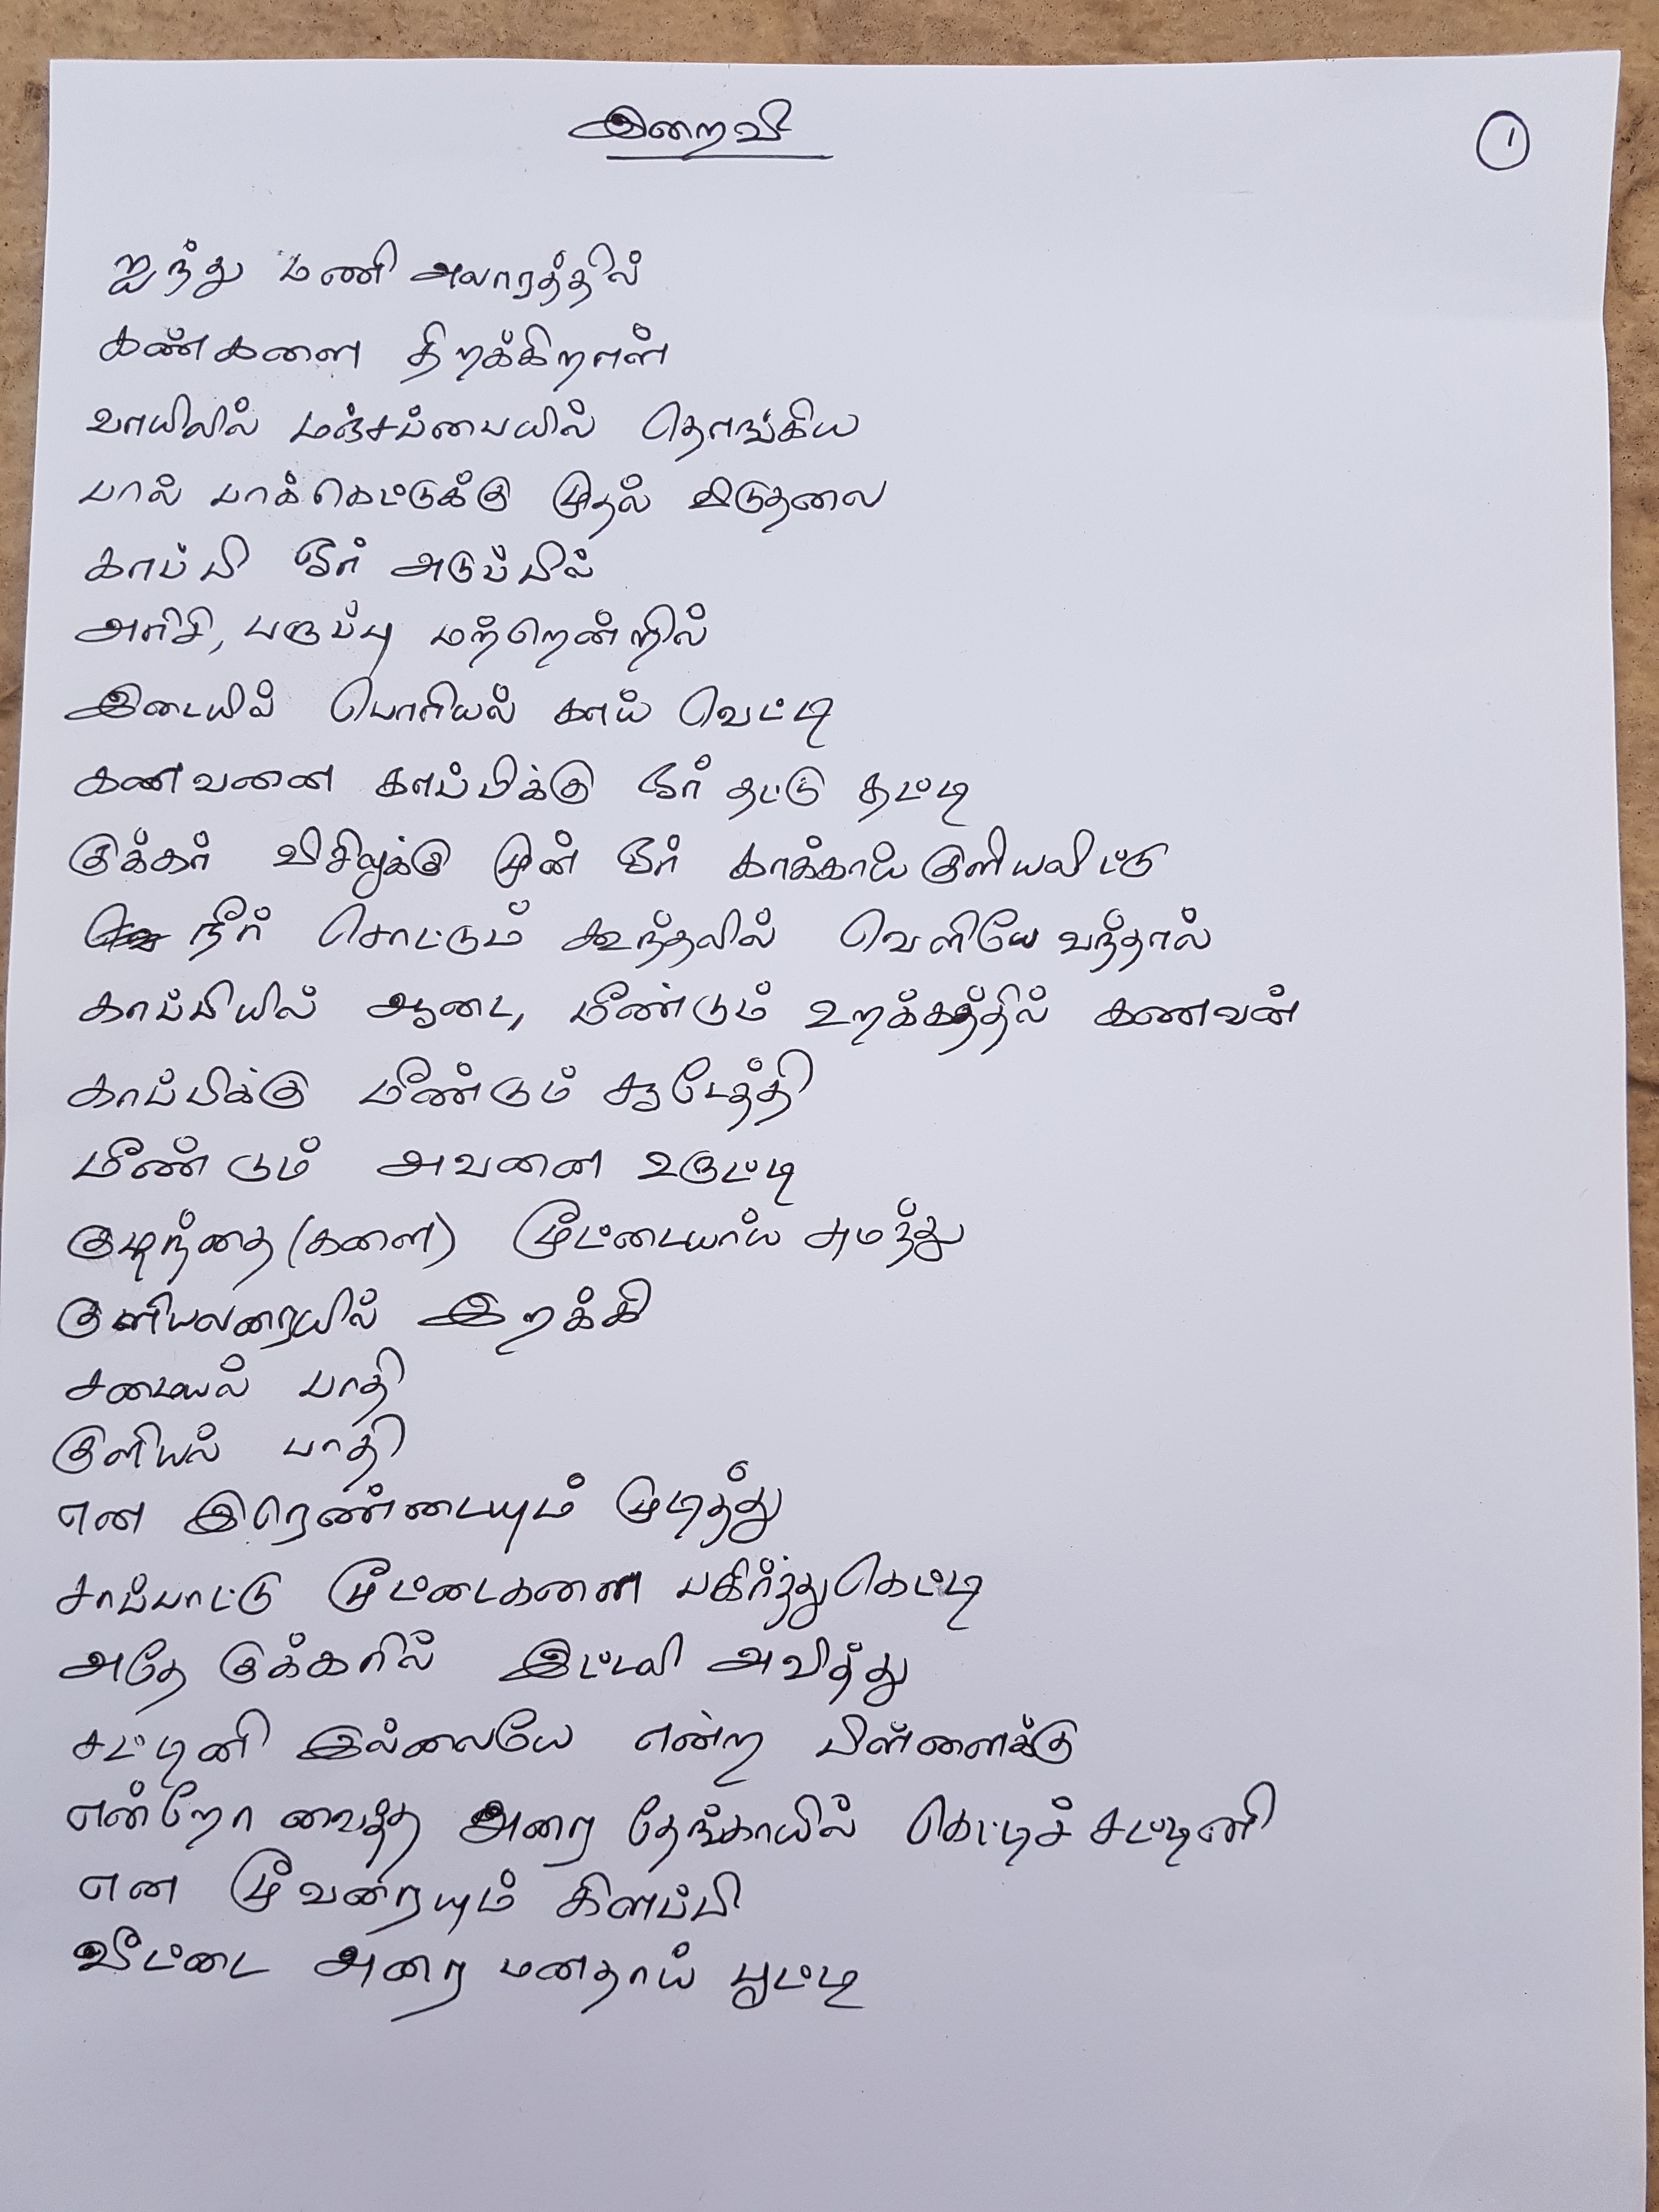 இறைவி
1
ஐந்து மணி அலாரத்தில்
கண்களை திறக்கிறாள்
வாயிலில் மஞ்சப்பையில் தொங்கிய
பால் பாக்கெட்டுக்கு முதல் விடுதலை
காப்பி ஓர் அடுப்பில்
அரிசி, பருப்பு மற்றொன்றில்
இடையில் பொரியல் காய் வெட்டி
கணவனை காப்பிக்கு ஓர் தட்டு தட்டி
குக்கர் விசிலுக்கு முன் ஓர் காக்காய் குளியலிட்டு
நீர் சொட்டும் கூந்தலில் வெளியே வந்தால்
காப்பியில் ஆடை, மீண்டும் உறக்கத்தில் கணவன்
காப்பிக்கு மீண்டும் சூடேத்தி
மீண்டும் அவனை உருட்டி
குழந்தை(களை) மூட்டையாய் சுமந்து
குளியலறையில் இறக்கி
சமையல் பாதி
குளியல் பாதி
என இரண்டையும் முடித்து
சாப்பாட்டு மூட்டைகளை பகிர்ந்து கட்டி
அதே குக்கரில் இட்டலி அவித்து
சட்டினி இல்லையே என்ற பிள்ளைக்கு
என்றோ வைத்த அரை தேங்காயில் கெட்டிச் சட்டினி
என மூவரையும் கிளப்பி
வீட்டை அரை மனதாய் பூட்டி